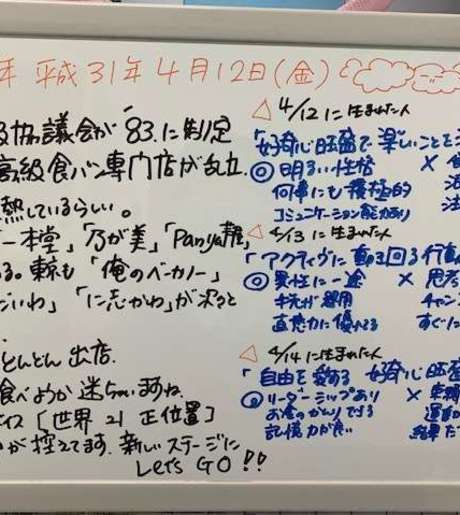 年 平成31年4月12日(金)
協議会が'83に制定
高級食パン専門店が乱立
熱しているらしい。
一本堂」「乃が美」「Panya
る。東京も「俺のベーカリー」
だいわ」「に志かわ」が次々と
どんどん出店.
食べようか迷ちゃいますね.
イス [世界 21 正位置]
が控えてます.新しいステージに
Let's GO!!
△ 4/12に生まれた人
「好奇心旺盛で楽しいことを
◎ 明るい性格 ×
何事にも積極的
コミュニケーション能力あり
△ 4/13に生まれた人
「アクティヴに動き回る行動
◎ 異性に一途 × 思考
手先が器用
直感力に優れてる すぐに
△ 4/14に生まれた人
「自由を愛する 好奇心旺盛
◎ リーダーシップあり ×
お金のかんりできる
記憶力が良い 結果